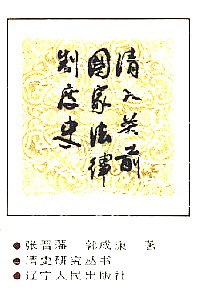 清入关前
國家法律
制度史
●张晋藩 郭成康 著
●清史研究丛书
●辽宁人民出版社